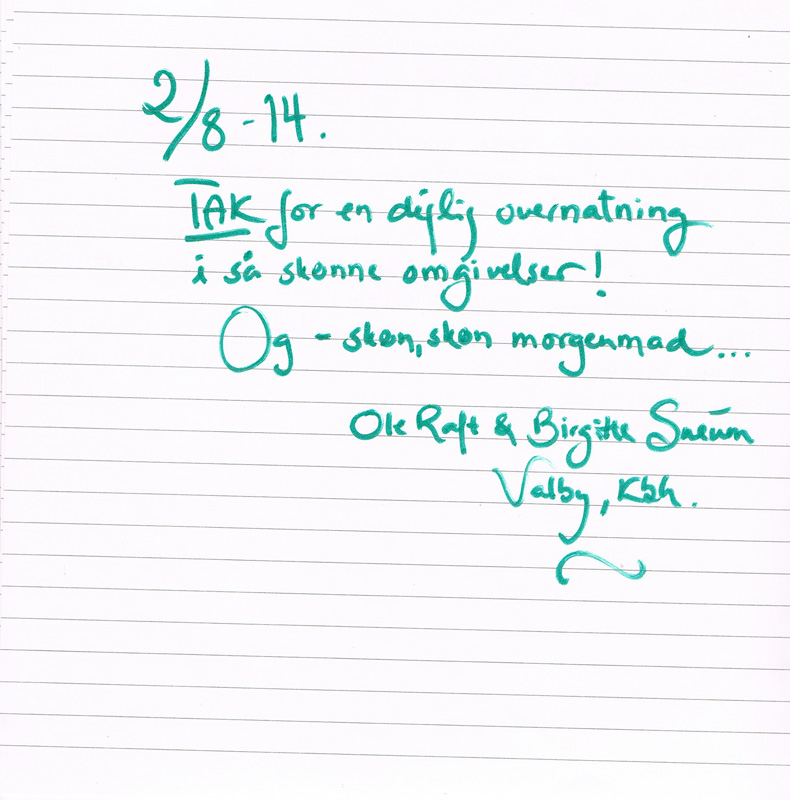 2/8 - 14.
TAK for en dejlig overnatning
i så skønne omgivelser!
Og - skøn, skøn morgenmad...
Ole Raft & Birgitte Sneum
Valby, Kbh.